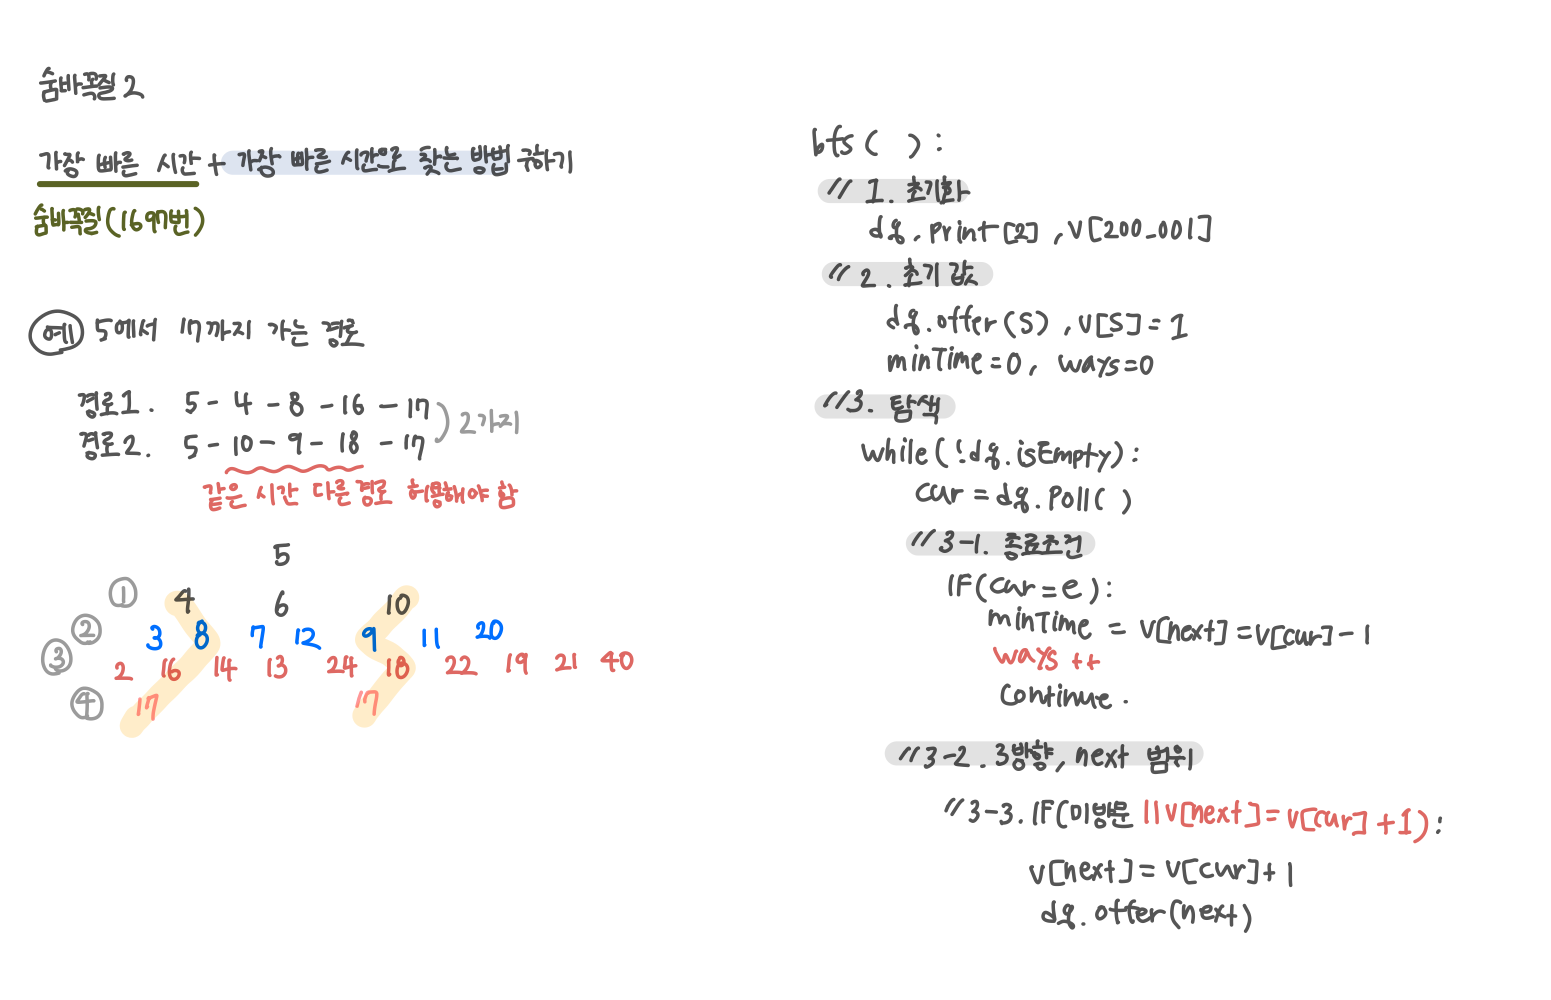 숨바꼭질 2
가장 빠른 시간 + 가장 빠른 시간으로 찾는 방법 구하기
숨바꼭질(1697번)
예 5에서 17까지 가는 경로
경로1. 5 - 4 - 8 - 16 - 17
경로2. 5 - 10 - 9 - 18 - 17
2가지
같은 시간 다른 경로 허용해야 함
5
① 4 6 10
② 3 8 7 12 9 11 20
③ 2 16 14 13 24 18 22 19 21 40
④ 17 17
bfs( ):
// 1. 초기화
dq. print[2], v[200_001]
// 2. 초기 값
dq.offer(S), v[S] = 1
minTime = 0, ways=0
//3. 탐색
while(!dq.isEmpty):
cur = dq. Poll( )
//3-1. 종료조건
IF(cur = e):
minTime = v[next] = v[cur] - 1
ways ++
continue.
//3-2. 3방향, next 범위
//3-3. IF(미방문 || v[next] = v[cur] + 1):
v[next] = v[cur] + 1
dq. offer(next)